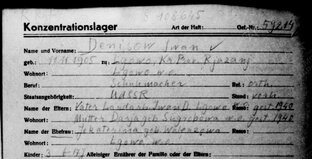 S 106045
Konzentrationslager Art der Haft: Gef.-Nr.: 59214
Name und Vorname: Denisow Iwan
geb.: 11.11.1905 zu Lgowo, Kr. Rjazanj
Wohnort: Lgowo w.o.
Beruf: Schumacher Rel.: orth.
Staatsangehörigkeit: UdSSR Stand: verh.
Name der Eltern: Vater Landarb. Iwan D. Lgowo Rasse: gest. 1940
Wohnort: Mutter Darja geb. w.o. gest. 1940
Name der Ehefrau: Jekaterina geb. Rasse:
Wohnort: Lgowo w.o.
Kinder: 3 Alleiniger Ernährer der Familie oder der Eltern: